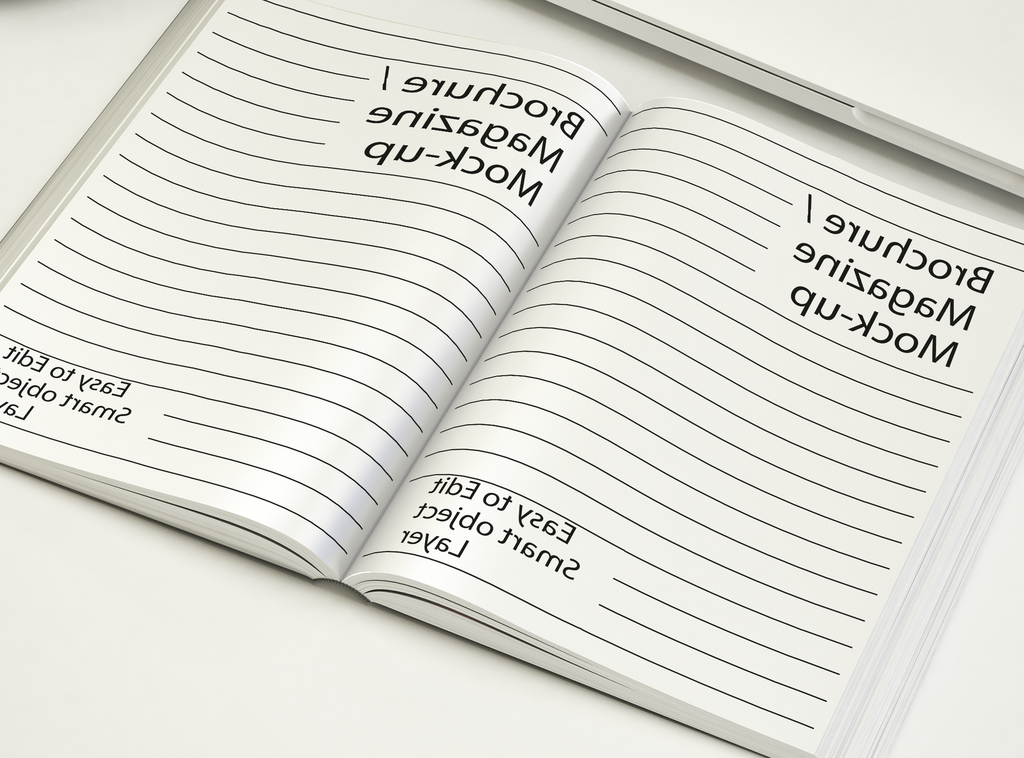 Brochure /
Magazine
Mock-up
Easy to Edit
Smart object
Brochure /
Magazine
Mock-up
Easy to Edit
Smart object
Layer